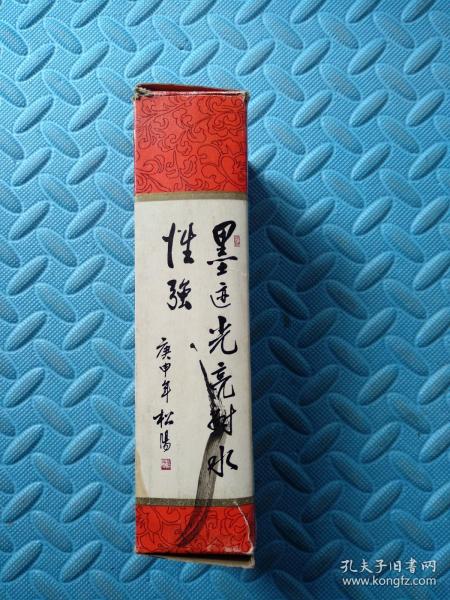 墨迹光亮耐水
性强
庚申年 松阳
孔夫子旧书网
www.kongfz.com